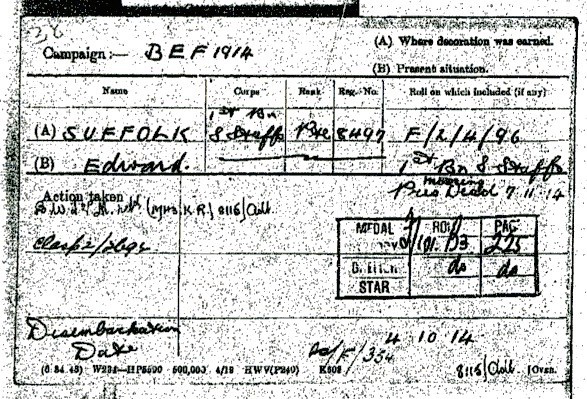 38
Campaign:— B E F 1914
(A) Where decoration was earned.
(B) Present situation.
Name Corps Rank Reg. No. Roll on which included (if any)
(A) SUFFOLK 1st Bn S Staffs Pte 8497 F/2/4/96
(B) Edward. 1st Bn S Staffs
Pres Dead 7.11.14
Action taken
(MHS. K.R.) 8115/Adt
Clasp
MEDAL ROLL PAGE
225
do do
STAR
Disembarkation
Date
4 10 14
(6 34 46) W234—HP5590 500,000 4/19 HWV(P240) K608
8115/Adt [Over.